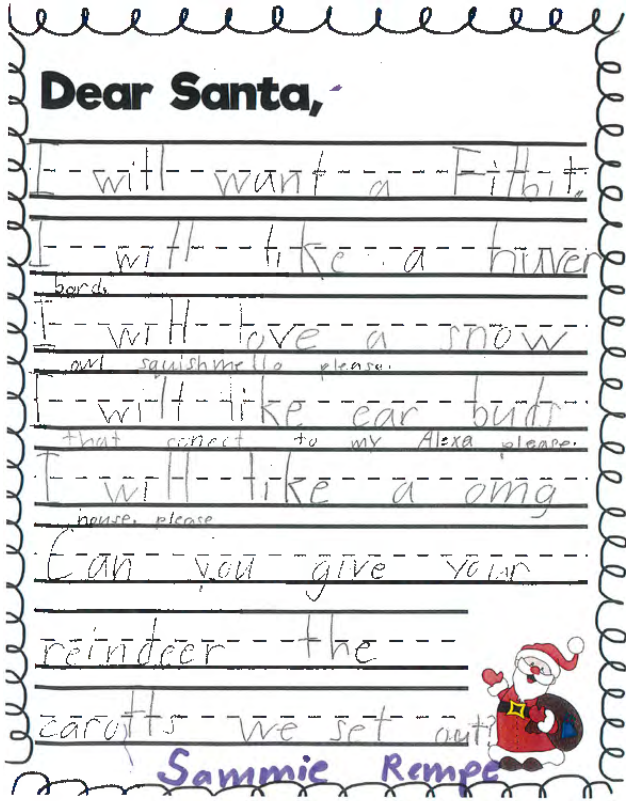 Dear Santa,
I will want a Fitbit.
I will like a huver
bord.
I will love a snow
owl squishmello please.
I will like ear buds
that conect to my Alexa please.
I will like a omg
house, please
Can you give your
reindeer the
carotts we set out?
Sammie Rempe